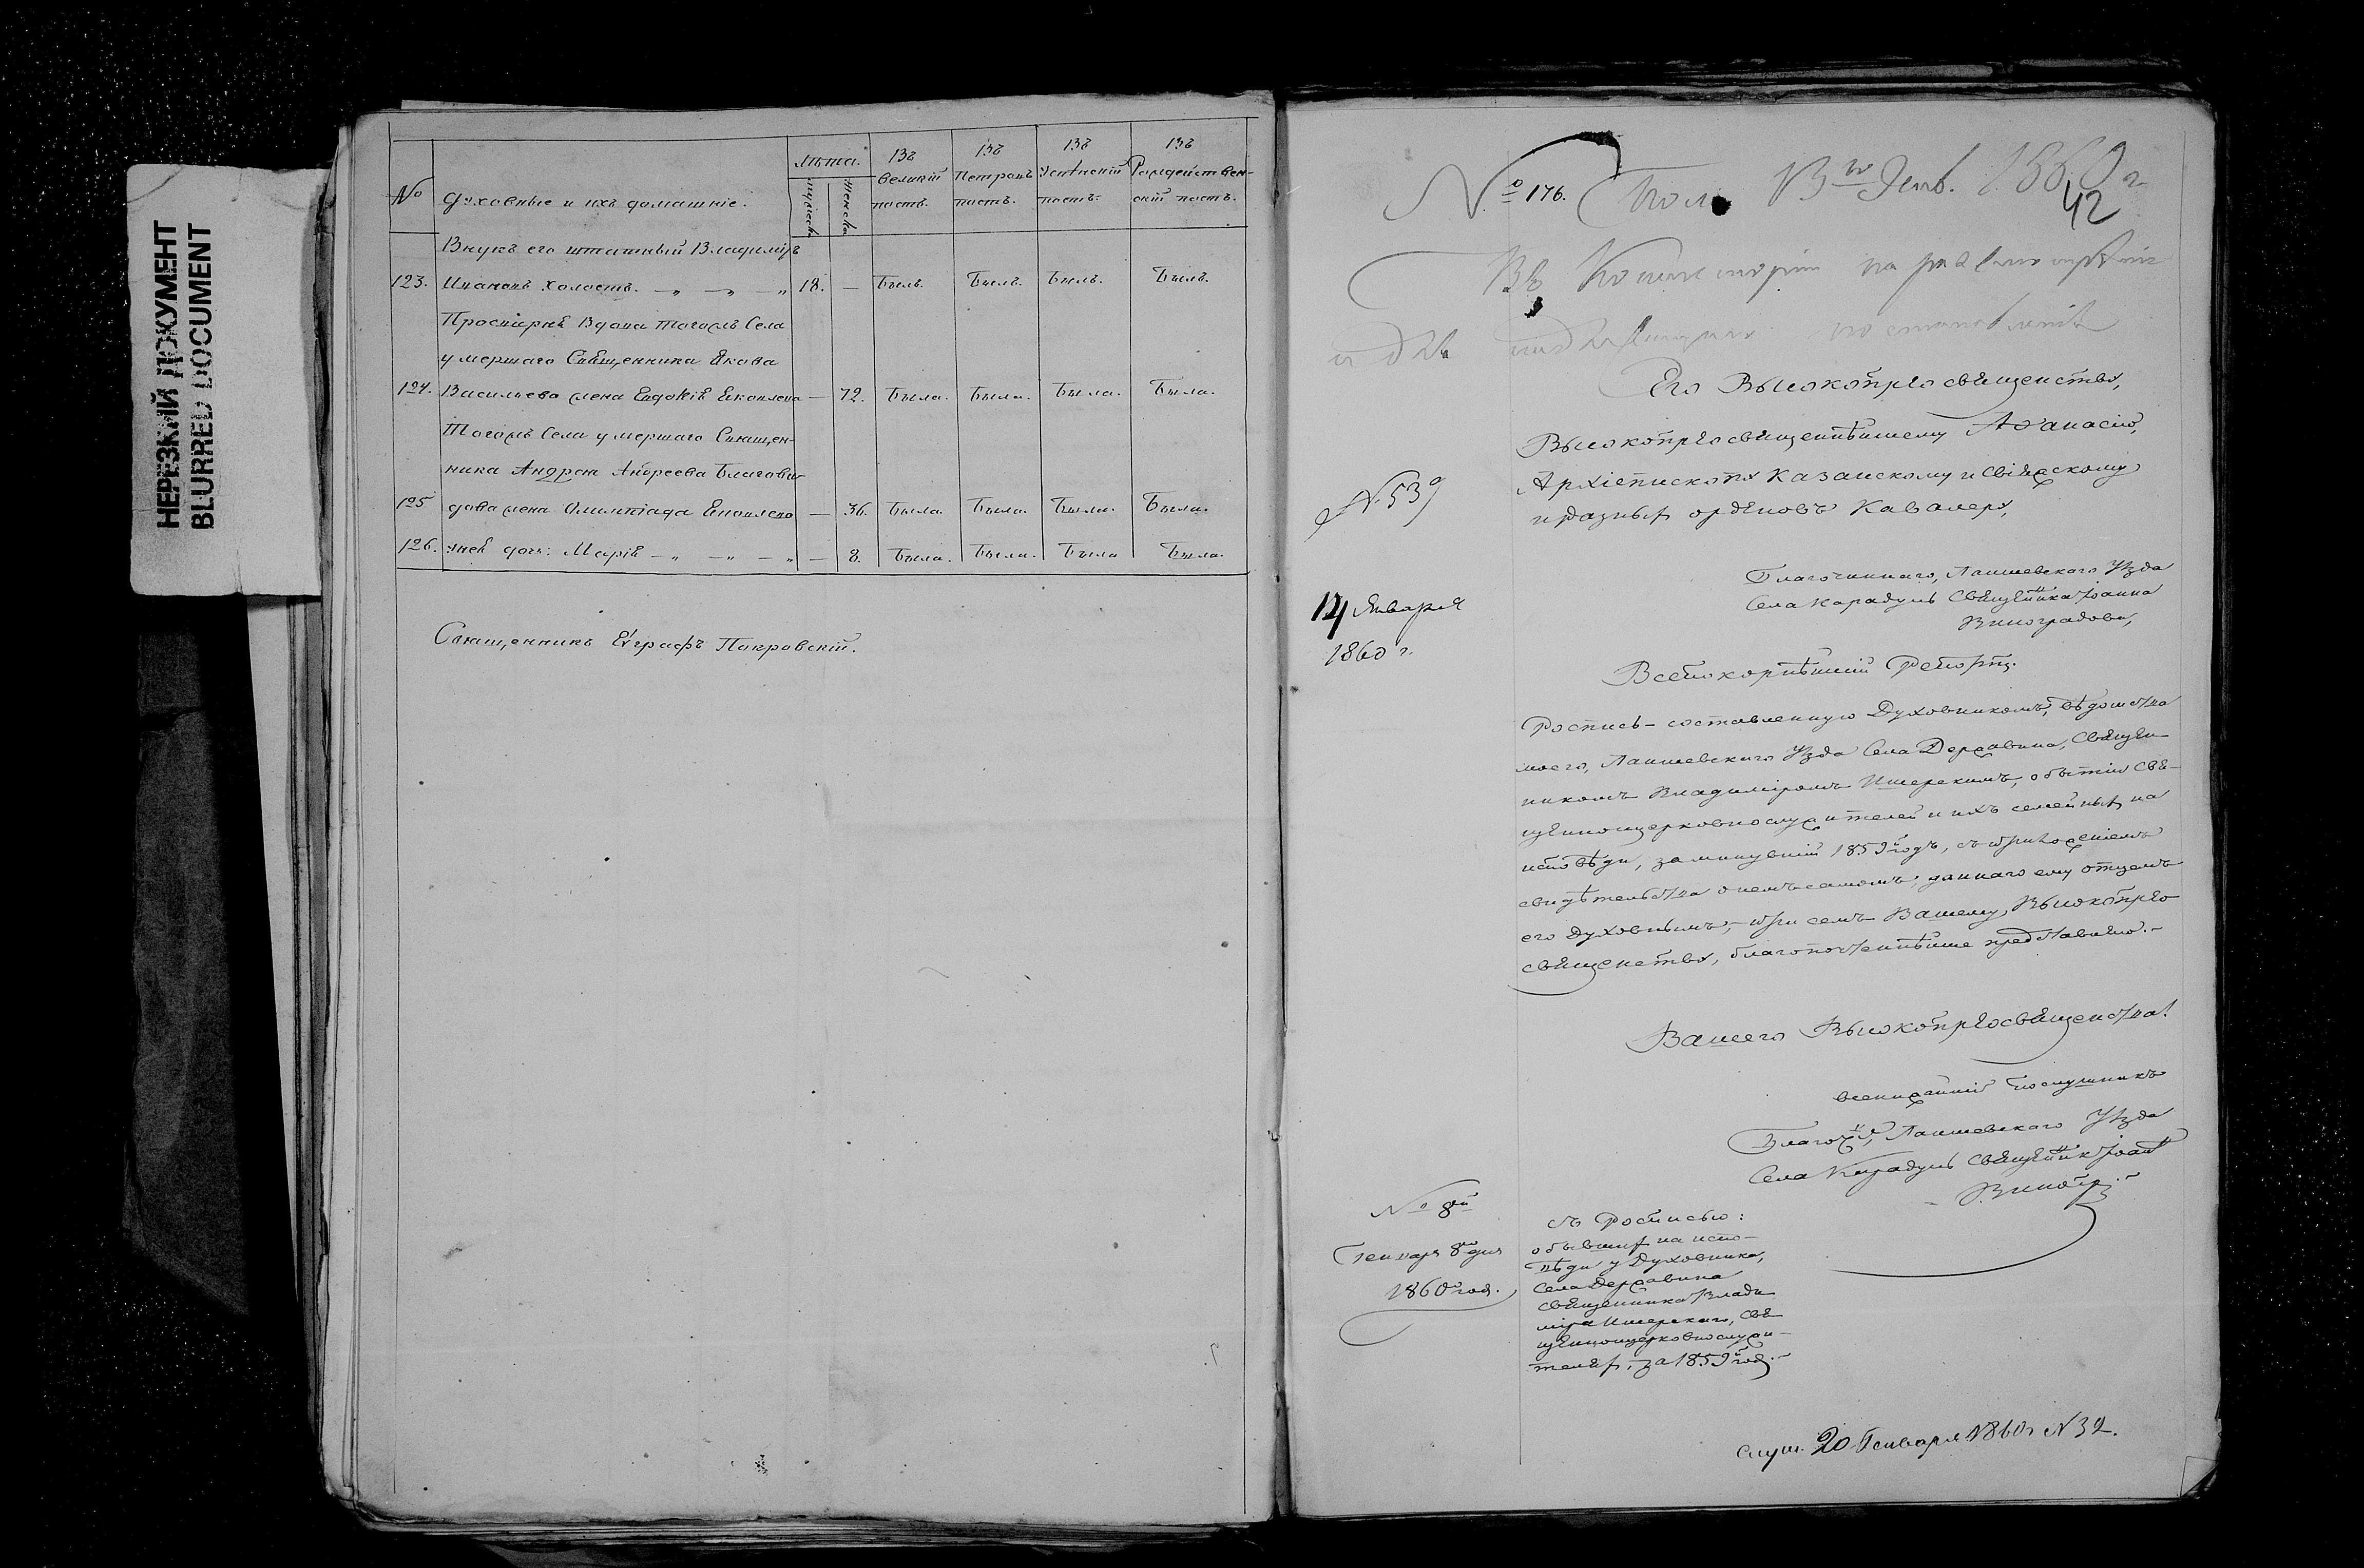 НЕРЕЗКИЙ ДОКУМЕНТ
BLURRED DOCUMENT
№
Духовные и ихъ домашніе.
Лѣта.
мужеск.
женска.
Въ великій постъ.
Въ Петровъ постъ.
Въ Успѣнскій постъ.
Въ Рождественскій постъ.
Внукъ его штатный Владиміръ
123. Ивановъ холостъ. — „ — „ — „ 18. — Былъ. Былъ. Былъ. Былъ.
Просвирня Вдова тогожъ Села
умершаго Священника Якова
124. Васильева жена Евдокія Яковлева — 72. Была. Была. Была. Была.
Тогожъ Села умершаго Священ-
ника Андрея Андреева Благови-
125 дова жена Олимпіада Яковлева — 36. Была. Была. Была. Была.
126. унея дочь: Марія — „ — „ — „ — 8. Была. Была. Была Была.
Священникъ Евграфъ Покровскій.
№ 176. Пол. 13го Генв. 1860 г.
42
Въ Консисторію на разсмотрѣніе
и для постановленія
Его Высокопреосвященству,
Высокопреосвященнѣйшему Аѳанасію,
Архіепископу Казанскому и Свіяжскому
и разныхъ орденовъ Кавалеру,
№ 539
14 Января
1860 г.
Благочиннаго, Лаишевскаго Уѣзда
Села Карадулъ Священника Іоанна
Виноградова,
Всепокорнѣйшій Репортъ.
Роспись – составленную Духовникомъ, вѣдомства
моего, Лаишевскаго Уѣзда Села Державина, Священ-
никомъ Владиміромъ Ишерскимъ, о бытіи Свя-
щенноцерковнослужителей и ихъ семейныхъ на
исповѣди, за минувшій 1859й годъ, съ приложеніемъ
свидѣтельства о немъ самомъ, даннаго ему отцемъ
его Духовнымъ, – при семъ Вашему Высокопрео-
священству, благопочтеннѣйше представляю. –
Вашего Высокопреосвященства!
всенижайшій послушникъ
Благоч. Лаишевскаго Уѣзда
Села Карадулъ Священникъ Іоаннъ
Виногр. –
№ 8й
Генваря 8го дня
1860 год.
съ Росписью:
о бывшихъ на испо-
вѣди у Духовника,
Села Державина
Священника Влади
міра Ишерскаго, Свя
щенноцерковнослужи-
теляхъ, за 1859й год. –
Слуш. 20 Генваря 1860 г № 32.